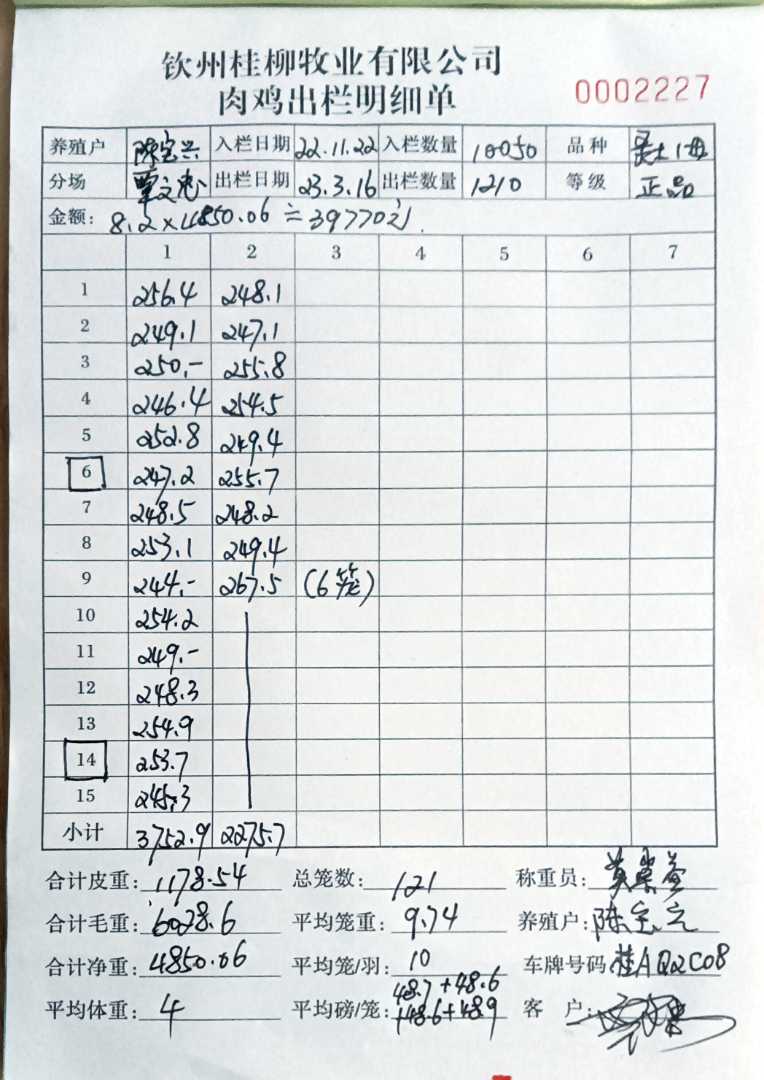 钦州桂柳牧业有限公司
肉鸡出栏明细单
0002227
养殖户 陈宝兴 入栏日期 22.11.22 入栏数量 10050 品种
分场 覃文忠 出栏日期 23.3.16 出栏数量 1210 等级 正品
金额: 8.2×4850.06≐39770元.
1 2 3 4 5 6 7
1 256.4 248.1
2 249.1 247.1
3 250.- 255.8
4 246.4 254.5
5 252.8 249.4
6 247.2 255.7
7 248.5 248.2
8 253.1 249.4
9 244.- 267.5 (6笼)
10 254.2
11 249.-
12 248.3
13 254.9
14 253.7
15 245.3
小计 3752.9 2275.7
合计皮重: 1178.54 总笼数: 121 称重员:
合计毛重: 6028.6 平均笼重: 9.74 养殖户:
合计净重: 4850.06 平均笼/羽: 10 车牌号码: 桂AQ2C08
平均体重: 4 平均磅/笼: 48.7+48.6+48.6+48.9 客户: